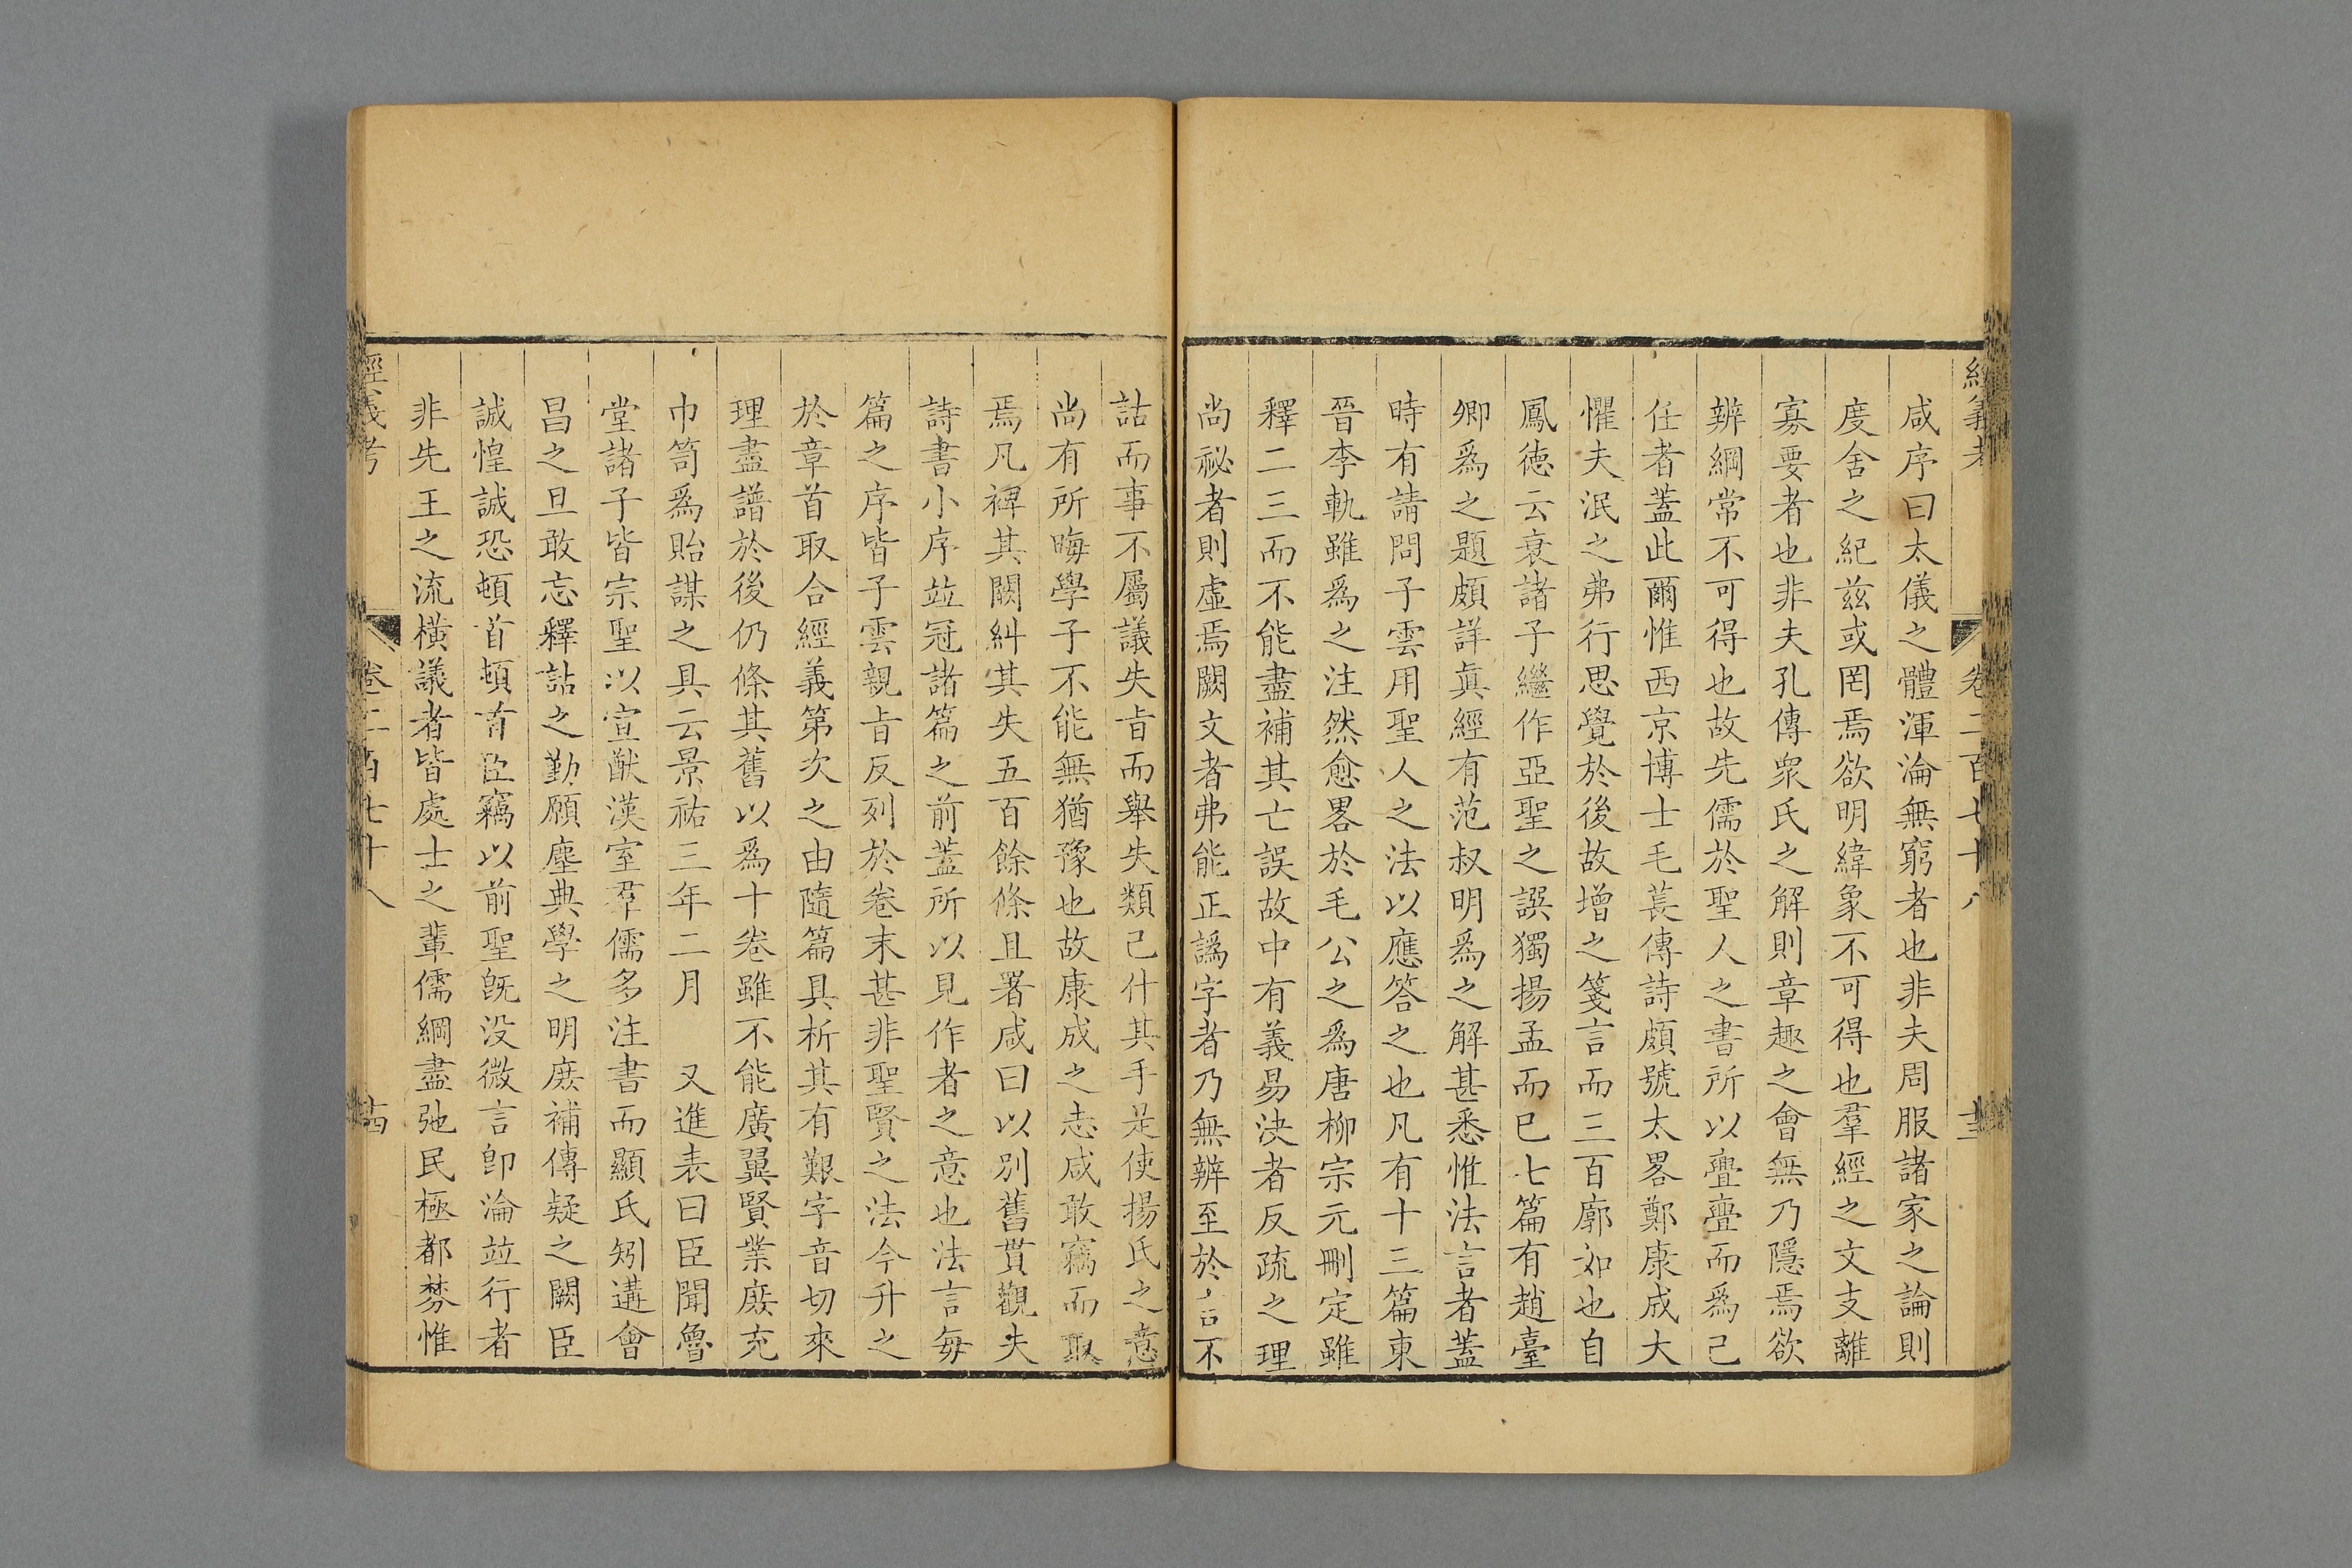 經義考 卷二百七十八
咸序曰太儀之體渾淪無窮者也非夫周服諸家之論則
度舍之紀玆或罔焉欲明緯象不可得也羣經之文支離
寡要者也非夫孔傳衆氏之解則章趣之會無乃隱焉欲
辨綱常不可得也故先儒於聖人之書所以亹亹而爲己
任者蓋此爾惟西京博士毛萇傳詩頗號太畧鄭康成大
懼夫泯之弗行思覺於後故增之箋言而三百廓如也自
鳳德云衰諸子繼作亞聖之譔獨揚孟而已七篇有趙臺
卿爲之題頗詳眞經有范叔明爲之解甚悉惟法言者蓋
時有請問子雲用聖人之法以應答之也凡有十三篇東
晉李軌雖爲之注然愈畧於毛公之爲唐柳宗元刪定雖
釋二三而不能盡補其亡誤故中有義易決者反疏之理
尚祕者則虛焉闕文者弗能正譌字者乃無辨至於言不
詁而事不屬議失旨而舉失類己什其手足使揚氏之意
尚有所晦學子不能無猶豫也故康成之志咸敢竊而取
焉凡裨其闕糾其失五百餘條且署咸曰以別舊貫觀夫
詩書小序竝冠諸篇之前蓋所以見作者之意也法言每
篇之序皆子雲親旨反列於卷末甚非聖賢之法今升之
於章首取合經義第次之由隨篇具析其有艱字音切來
理盡譜於後仍條其舊以爲十卷雖不能廣翼賢業庶充
巾笥爲貽謀之具云景祐三年二月　又進表曰臣聞魯
堂諸子皆宗聖以宣猷漢室羣儒多注書而顯氏矧遘會
昌之旦敢忘釋詁之勤願塵典學之明庶補傳疑之闕臣
誠惶誠恐頓首頓首臣竊以前聖旣没微言卽淪竝行者
非先王之流横議者皆處士之輩儒綱盡弛民極都棼惟
經義考 卷二百七十八 十四